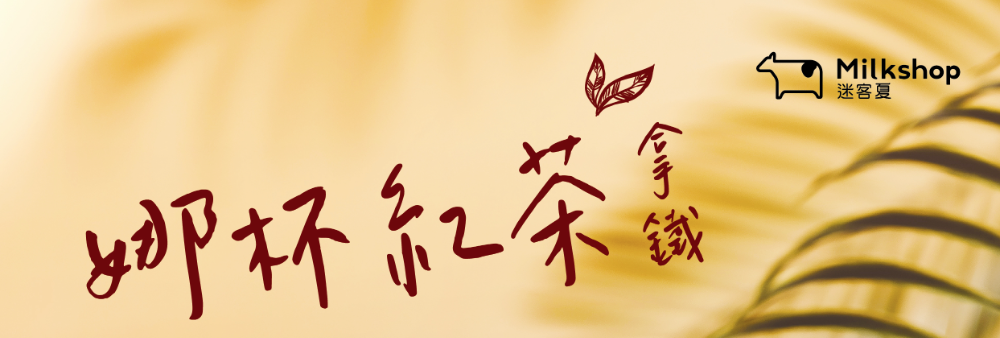 Milkshop
迷客夏
娜杯紅茶
拿鐵